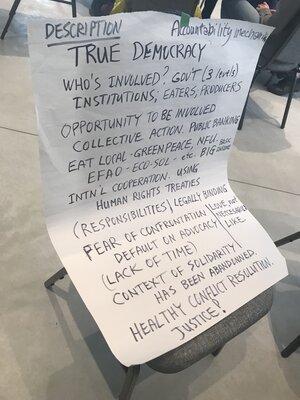 DESCRIPTION
Accountability mechanisms
TRUE DEMOCRACY
WHO'S INVOLVED? GOV'T (3 levels)
INSTITUTIONS, EATERS, PRODUCERS
OPPORTUNITY TO BE INVOLVED
COLLECTIVE ACTION. PUBLIC BANKING
EAT LOCAL - GREENPEACE, NFU. BASIC INCOME
EFAO - ECO-SOL - etc. BIG
INT'L COOPERATION. USING
HUMAN RIGHTS TREATIES
(RESPONSIBILITIES) LEGALLY BINDING
FEAR OF CONFRONTATION / LOVE NOT
DEFAULT ON ADVOCACY / LIKE
(LACK OF TIME)
CONTEXT OF SOLIDARITY
HAS BEEN ABANDONNED
HEALTHY CONFLICT RESOLUTION.
JUSTICE!